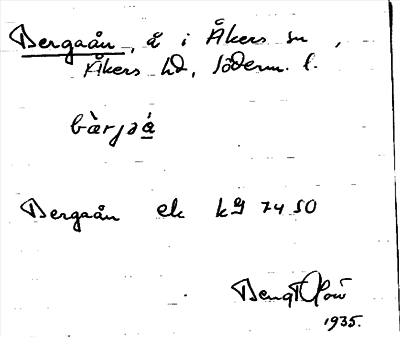 Bergaån, å i Åkers sn,
Åkers hd, Söderm. l.
bàrjaá
Bergaån ek kg 7450
Bengt
1935.